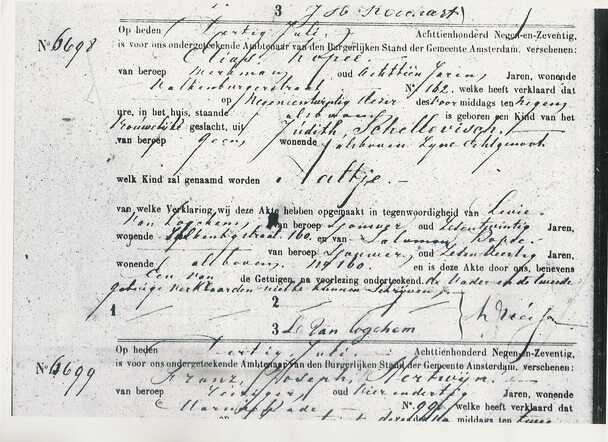 3 
No 6698 Op heden Dertig Juli. Achttienhonderd Negen-en-Zeventig,
is voor ons ondergeteekende Ambtenaar van den Burgerlijken Stand der Gemeente Amsterdam, verschenen:
Elias Kopee
van beroep Werkman oud Achttien Jaren, Jaren, wonende
Valkenburgerstraat No 162. welke heeft verklaard dat
op Negenentwintig dezer des Voor middags ten Negen
ure, in het huis, staande alsboven is geboren een Kind van het
Vrouwelijke geslacht, uit Judith Schellevisch.
van beroep Geen, wonende alsboven Zyne Echtgenoote
welk Kind zal genaamd worden Naatje
van welke Verklaring wij deze Akte hebben opgemaakt in tegenwoordigheid van Levie
Van Logchem, van beroep Sjouwer oud Jaren,
wonende 160. en van Salomon
van beroep Sjouwer, oud Jaren,
wonende alsboven, No 160. en is deze Akte door ons, benevens
Een van de Getuigen, na voorlezing onderteekend. De Vader en de tweede
getuige verklaarden niet te kunnen Schrijven
1 2
3 L. Van Logchem
No 6699 Op heden Dertig Juli. Achttienhonderd Negen-en-Zeventig,
is voor ons ondergeteekende Ambtenaar van den Burgerlijken Stand der Gemeente Amsterdam, verschenen:
Franz, Joseph,
van beroep oud Vierendertig Jaren, wonende
Marnixkade No 99 welke heeft verklaard dat